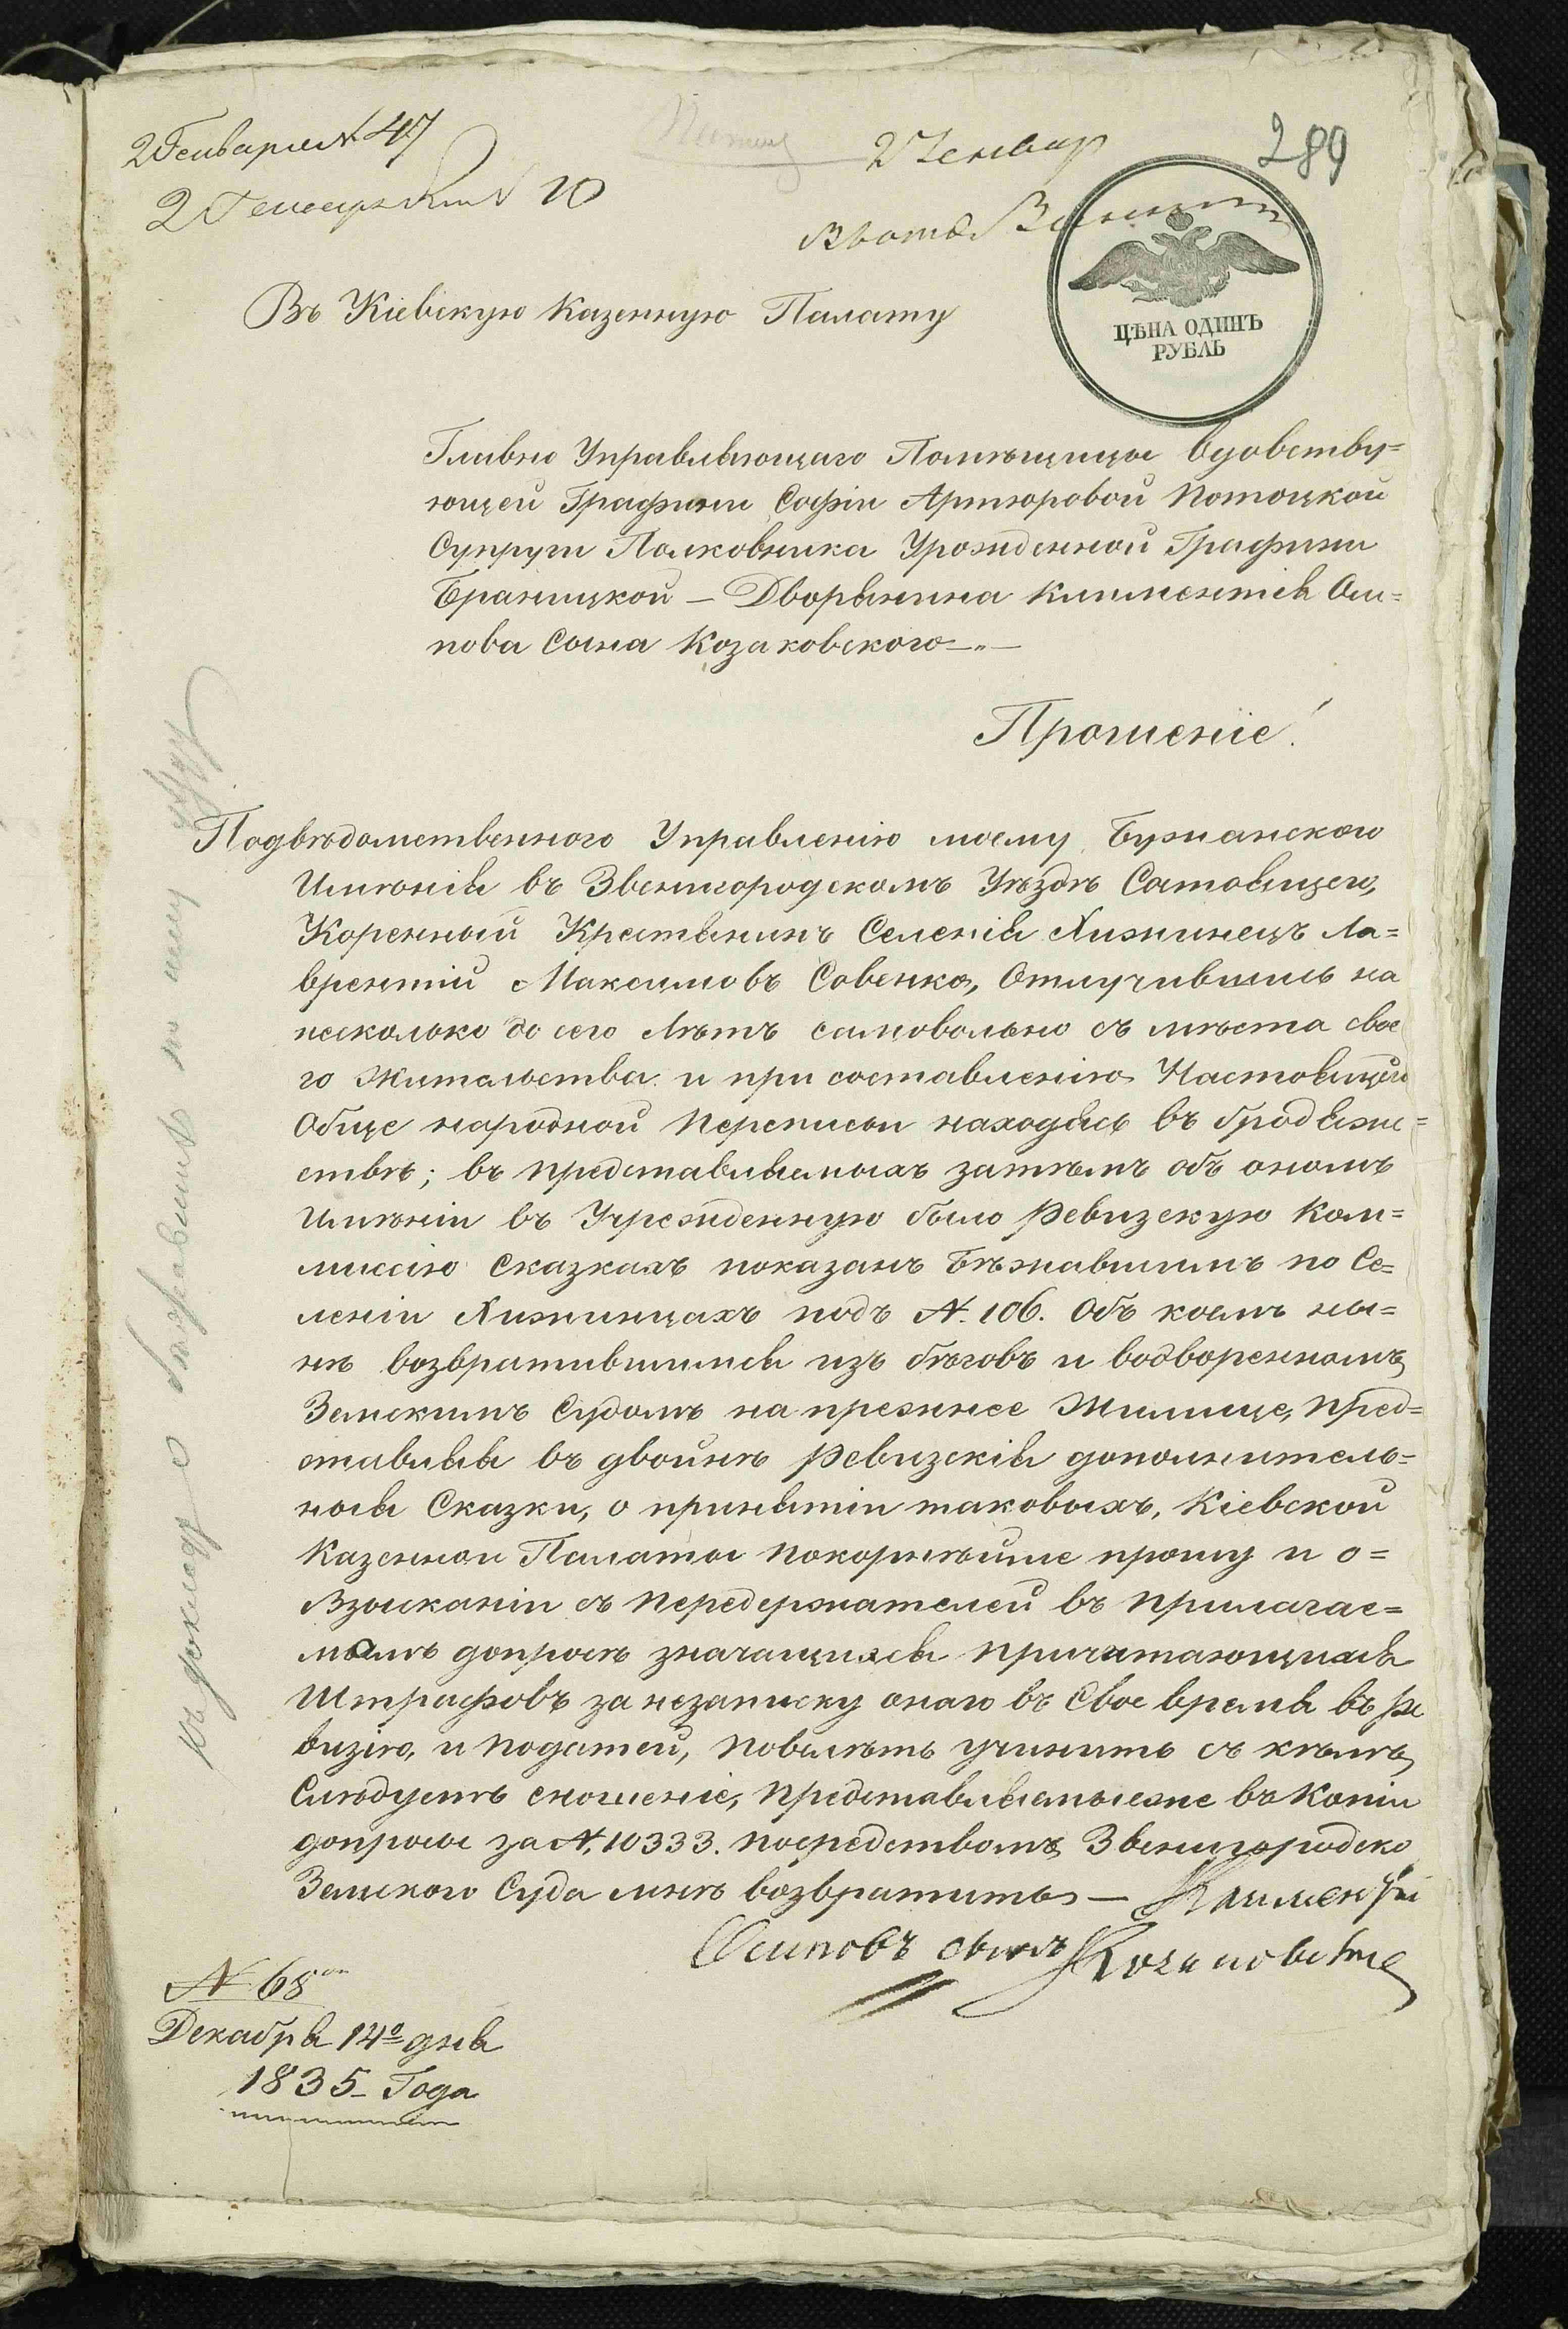 2 Генваря № 47
289
2 Генваря № 10
2 Генвар
Въ Кіевскую Казенную Палату
ЦѢНА ОДИНЪ
РУБЛЬ
Главно Управляющаго Помѣщицы вдовству=
ющей Графини Софіи Артюровой Потоцкой
Супруги Полковника Урожденной Графини
Браницкой — Дворянина Климентія Оси=
пова Сына Козаковского —„—
Прошеніе!
Подвѣдомственного Управленію моему Бужанского
Имѣнія въ Звенигородскомъ Уѣздѣ Состоящего,
Коренный Крестянинъ Селенія Хижинецъ Ла=
врентій Максимовъ Совенко, Отлучившись на
несколько до сего Лѣтъ самовольно съ мѣста свое
го жительства и при составленію Настоящой
Обще народной переписы находясь въ бродяже=
ствѣ; въ представляемыхъ затѣмъ объ ономъ
Имѣніи въ Учрежденную было Ревизскую Ком=
миссію Сказкахъ показанъ Бѣжавшимъ по Се=
леніи Хижинцахъ подъ №. 106. Объ коемъ ны=
нѣ возвратившимся изъ бѣговъ и водворенномъ
Земскимъ Судомъ на прежнее Жилище, пред=
ставляя въ двойнѣ Ревизскія дополнитель=
ныя Сказки, о принятіи таковыхъ, Кіевской
Казенной Палаты покорнѣйше прошу и о=
Взысканіи съ передержателей въ прилагае=
момъ допросѣ значащихся причитающихся
Штрафовъ за незаписку онаго въ Свое время въ Ре
визію, и податей, повелѣть учинить съ кѣмъ
Слѣдуетъ сношеніе, представляемыеже въ Копіи
допросы за №. 10333. посредствомъ Звенигородско
Земского Суда мнѣ возвратить — Климентій
Осиповъ сынъ Козаковскій
№ 68
Декабря 14º дня
1835 Года